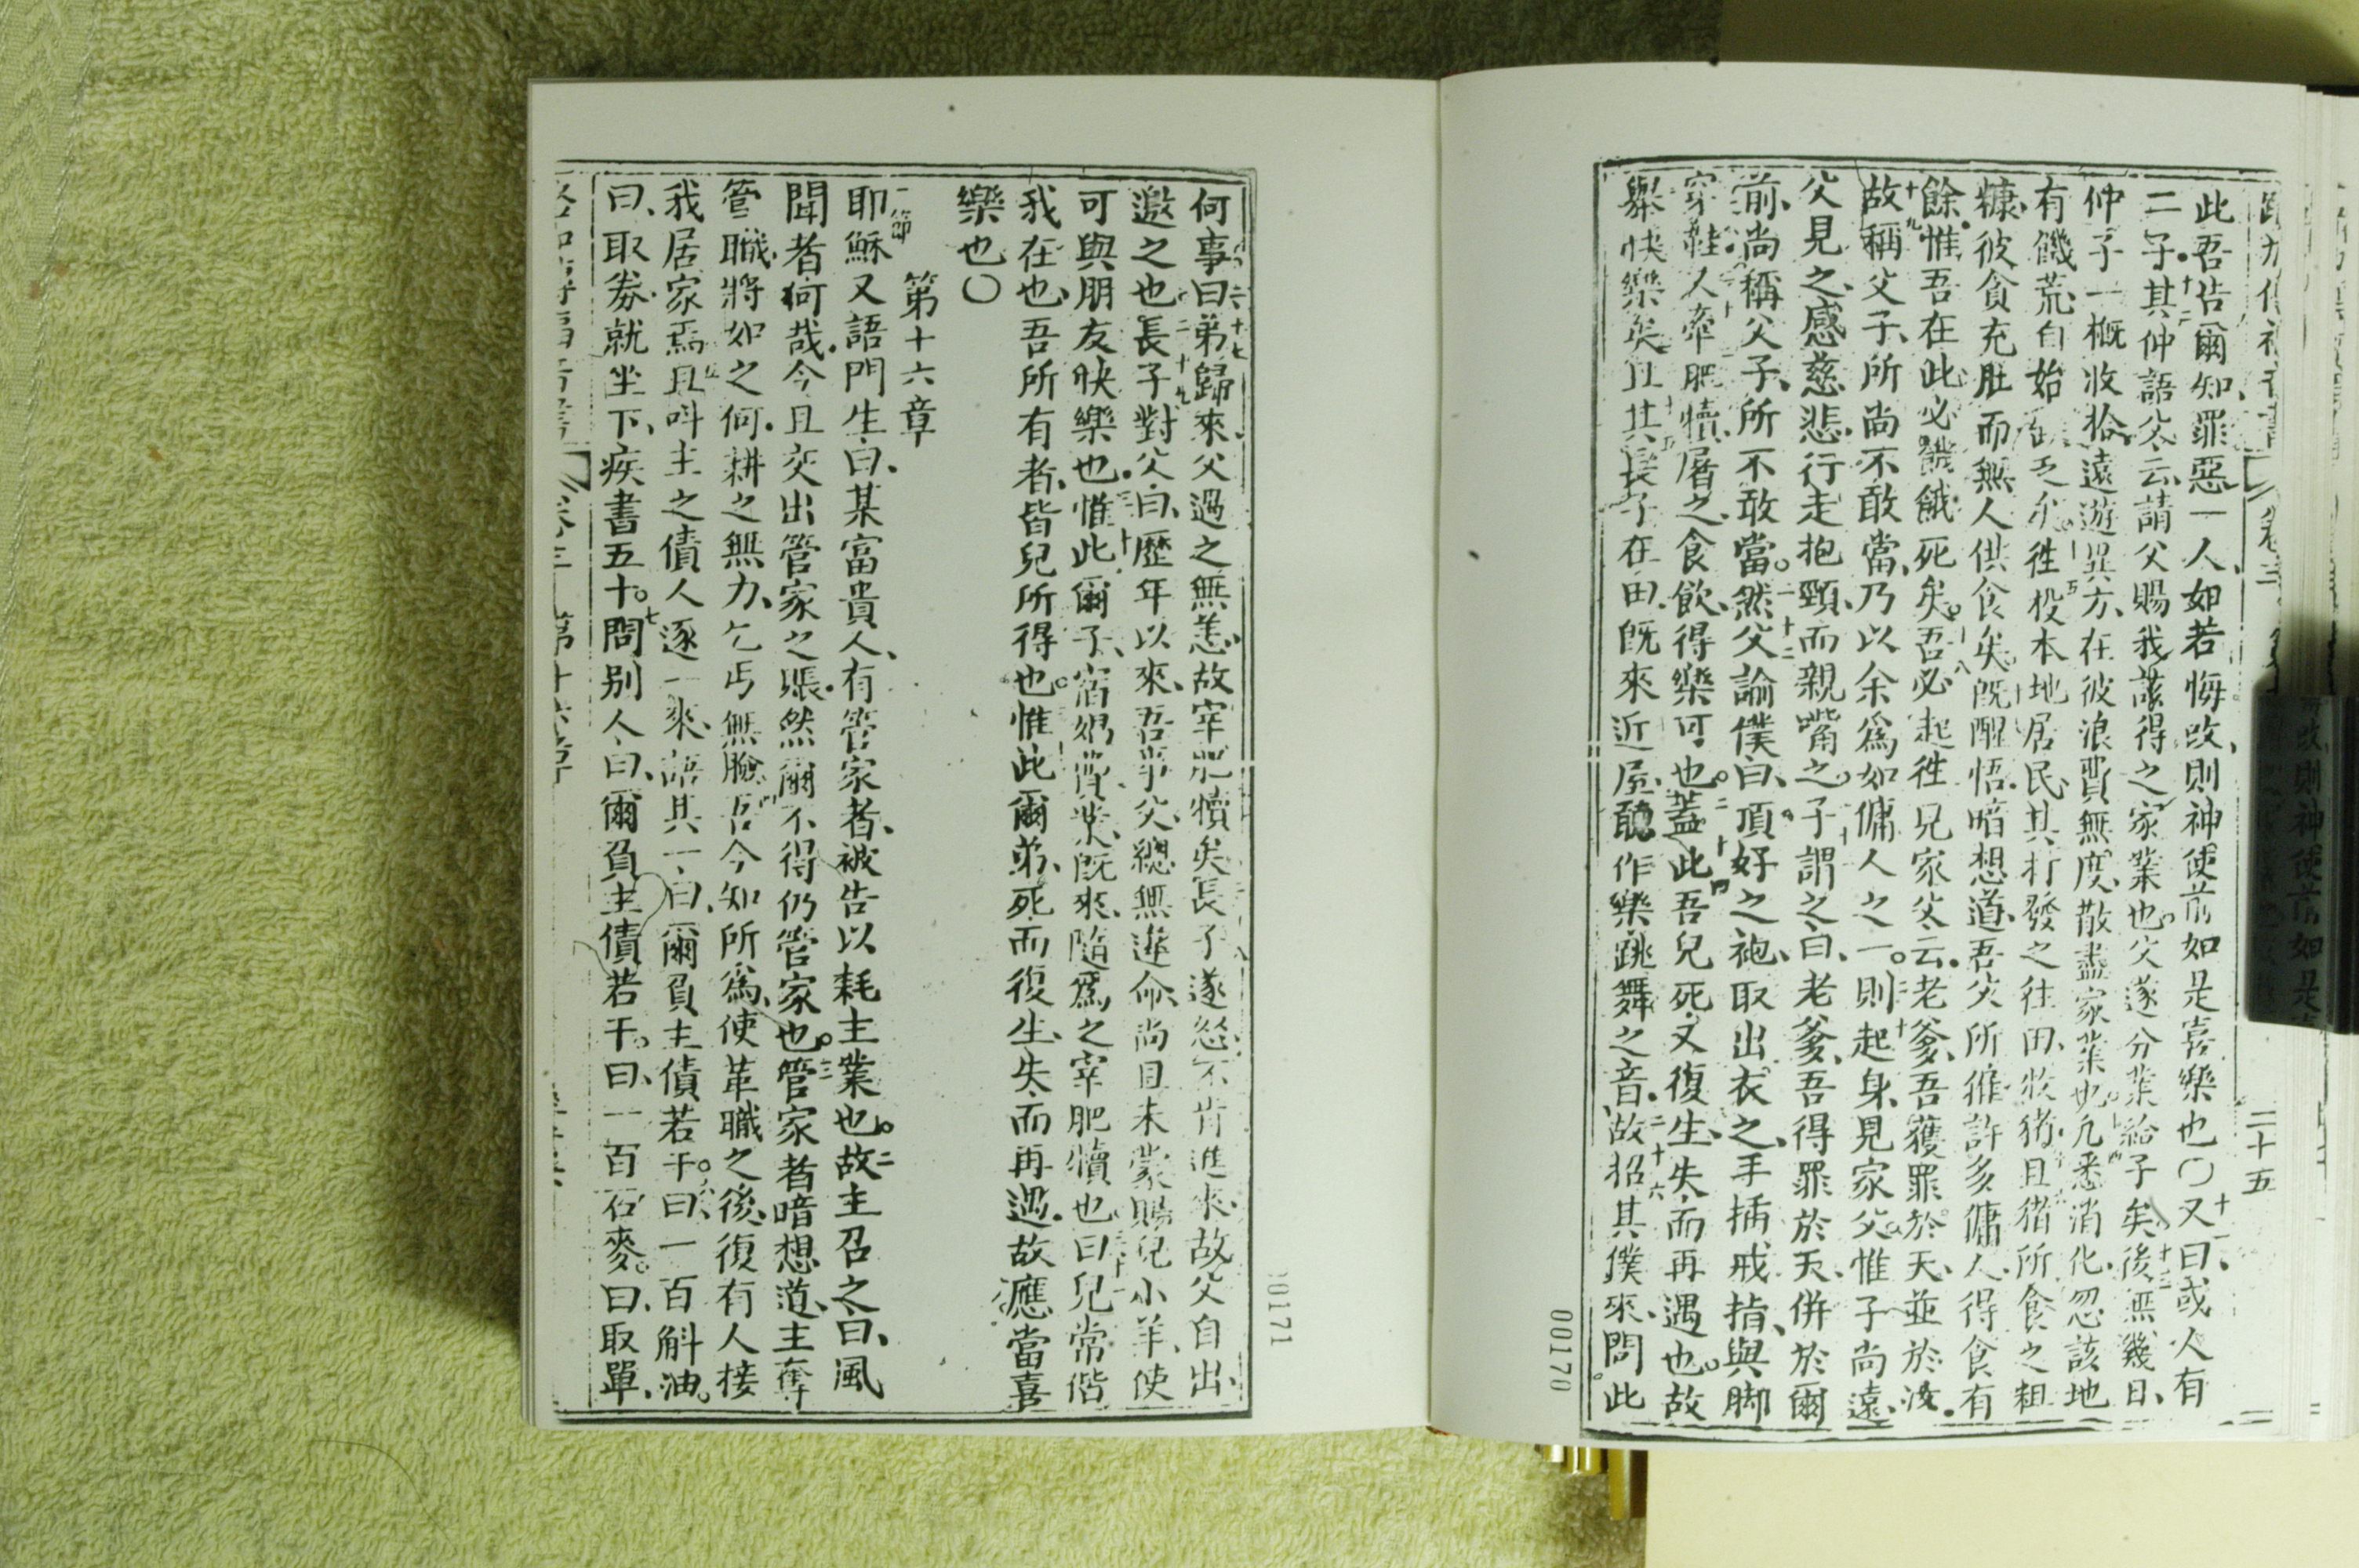 此吾告爾知罪惡一人、如若悔改、則神使前如是喜樂也〇又曰、或人有
二子。其仲語父云、請父賜我該得之家業也。父遂分業給子矣。後無幾日、
仲子一概收拾、遠遊異方、在彼浪費無度、散盡家業也。凡悉消化、忽該地
有饑荒、自始缺乏矣。徃投本地居民、其打發之往田、牧猪、且猪所食之粗
糠、彼貪充肚、而無人供食矣。旣醒悟、暗想道、吾父所雇許多傭人、得食有
餘、惟吾在此、必饑餓死矣。吾必起徃見家父、云、老爹、吾獲罪於天、並於汝。
故稱父子、所尚不敢當、乃以余爲如傭人之一。則起身、見家父。惟子尚遠、
父見之、感慈悲、行走抱頸、而親嘴之。子謂之曰、老爹、吾得罪於天、併於爾
前、尚稱父子、所不敢當。然父論僕曰、頂好之袍、取出衣之、手插戒指、與脚
穿鞋、又牽肥犢、屠之、食飲、得樂可也。蓋此吾兒死、又復生、失、而再遇也。故
舉快樂矣。且其長子在田、旣來近屋、聽作樂、跳舞之音、故招其僕來、問、此
二十五
00170
何事、曰、弟歸來、父遇之無恙、故宰肥犢矣。長子遂怒、不肯進來、故父自出、
邀之也。長子對父曰、歷年以來、吾事父、總無違命、尚且未蒙賜兒小羊、使
可與朋友快樂也。惟此爾子、宿娼費業、旣來、隨爲之宰肥犢也。曰、兒常偕
我在也、吾所有者、皆兒所得也。惟此爾弟、死而復生、失、而再遇、故應當喜
樂也〇
第十六章
一節
耶穌又語門生、曰、某富貴人、有管家者、被告以耗主業也。二故主召之、曰、風
聞者何哉、今且交出管家之賬、然爾不得仍管家也。三管家者暗想道、主奪
管職、將如之何、耕之無力、乞丐無臉。四吾今知所爲、使革職之後、復有人接
我居家焉。五且呌主之債人逐一來、語其一、曰、爾負主債若干。六曰、一百斛油。
曰、取券、就坐下、疾書五十。七問别人、曰、爾負主債若干。曰、一百石麥。曰、取單、
00171